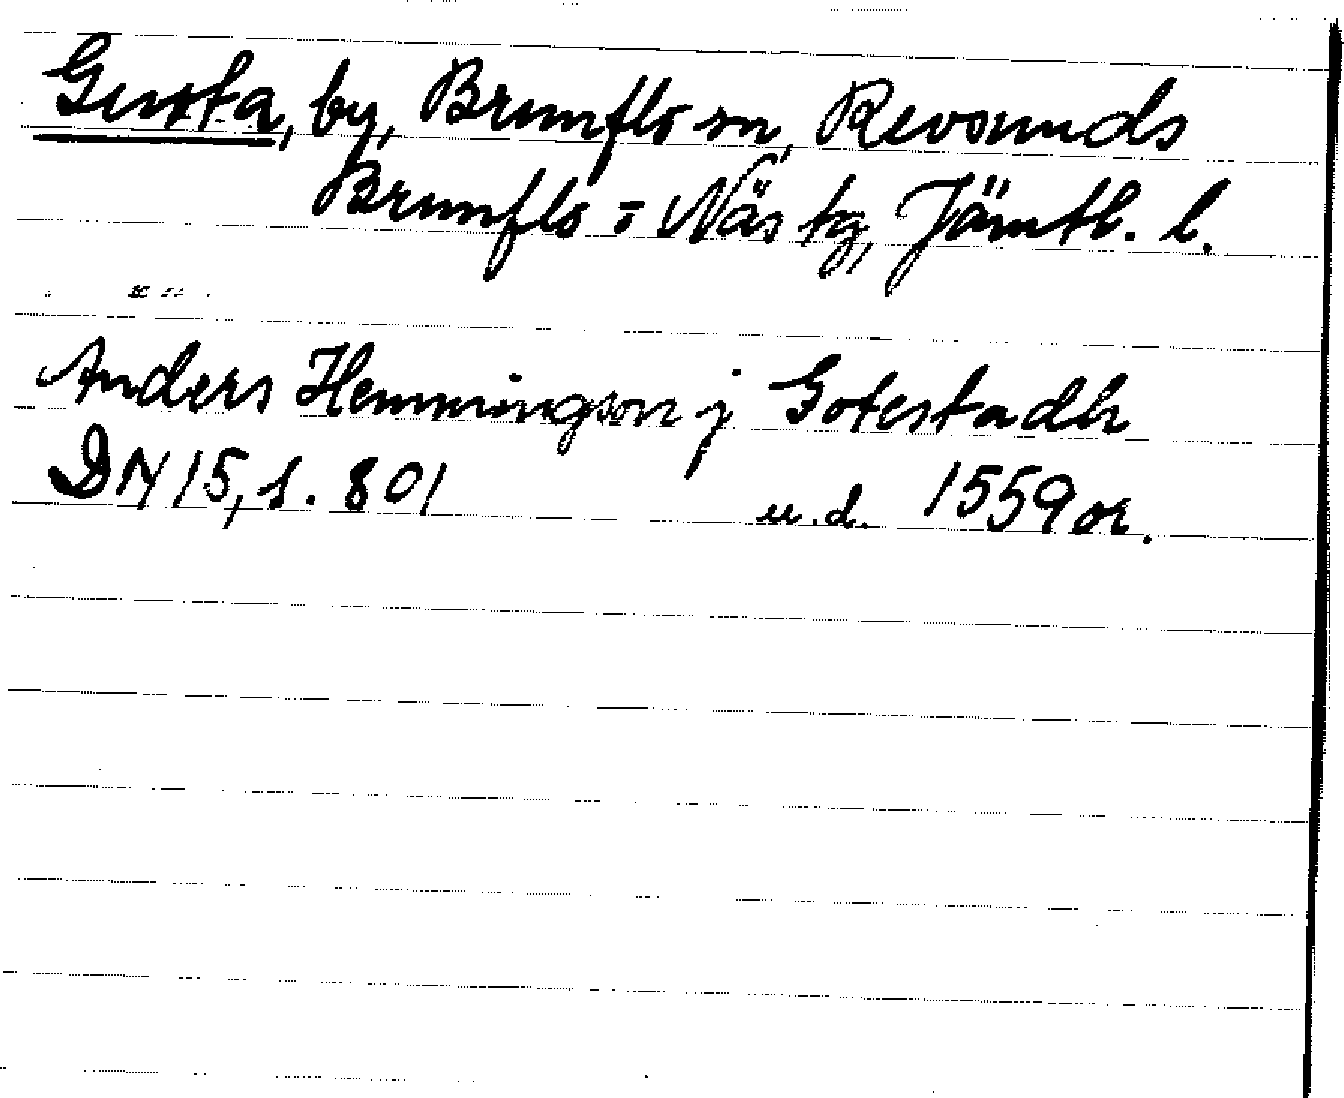 Gusta, by, Brunflo sn, Revsunds
Brunflo o Näs tg, Jämtl. l.
Anders Hemmingson j Gotestadh
DN 15, s. 801 u.d. 1559 or.